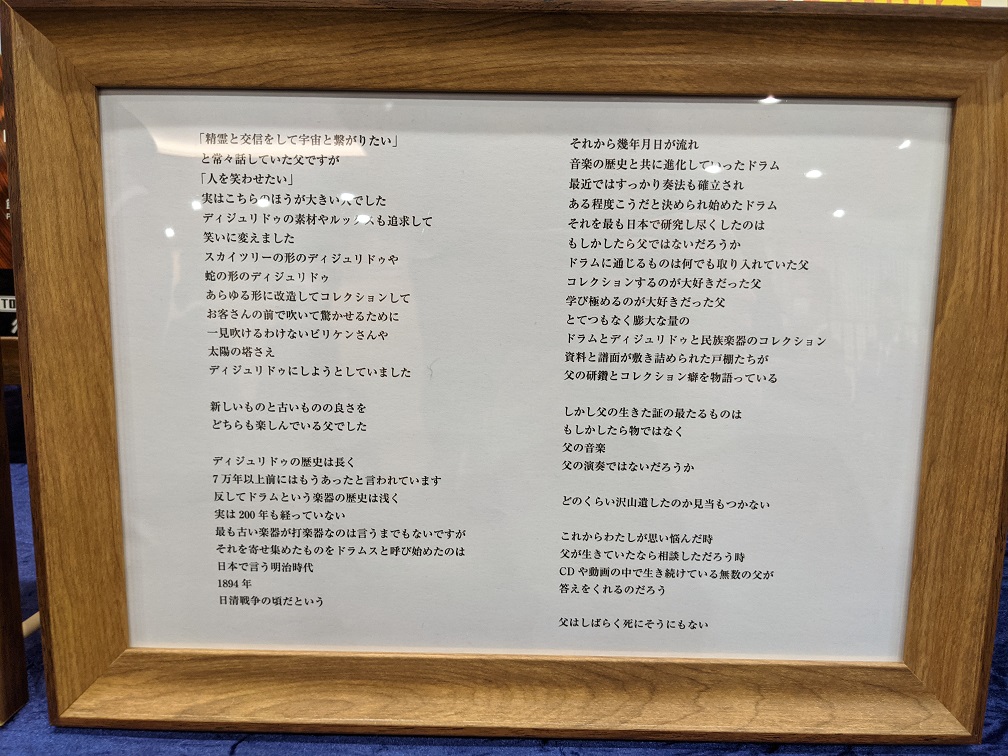 「精霊と交信をして宇宙と繋がりたい」
と常々話していた父ですが
「人を笑わせたい」
実はこちらのほうが大きい人でした
ディジュリドゥの素材やルックスも追求して
笑いに変えました
スカイツリーの形のディジュリドゥや
蛇の形のディジュリドゥ
あらゆる形に改造してコレクションして
お客さんの前で吹いて驚かせるために
一見吹けるわけないビリケンさんや
太陽の塔さえ
ディジュリドゥにしようとしていました
新しいものと古いものの良さを
どちらも楽しんでいる父でした
ディジュリドゥの歴史は長く
7万年以上前にはもうあったと言われています
反してドラムという楽器の歴史は浅く
実は200年も経っていない
最も古い楽器が打楽器なのは言うまでもないですが
それを寄せ集めたものをドラムスと呼び始めたのは
日本で言う明治時代
1894年
日清戦争の頃だという
それから幾年月日が流れ
音楽の歴史と共に進化していったドラム
最近ではすっかり奏法も確立され
ある程度こうだと決められ始めたドラム
それを最も日本で研究し尽くしたのは
もしかしたら父ではないだろうか
ドラムに通じるものは何でも取り入れていた父
コレクションするのが大好きだった父
学び極めるのが大好きだった父
とてつもなく膨大な量の
ドラムとディジュリドゥと民族楽器のコレクション
資料と譜面が敷き詰められた戸棚たちが
父の研鑽とコレクション癖を物語っている
しかし父の生きた証の最たるものは
もしかしたら物ではなく
父の音楽
父の演奏ではないだろうか
どのくらい沢山遺したのか見当もつかない
これからわたしが思い悩んだ時
父が生きていたなら相談しただろう時
CDや動画の中で生き続けている無数の父が
答えをくれるのだろう
父はしばらく死にそうにもない